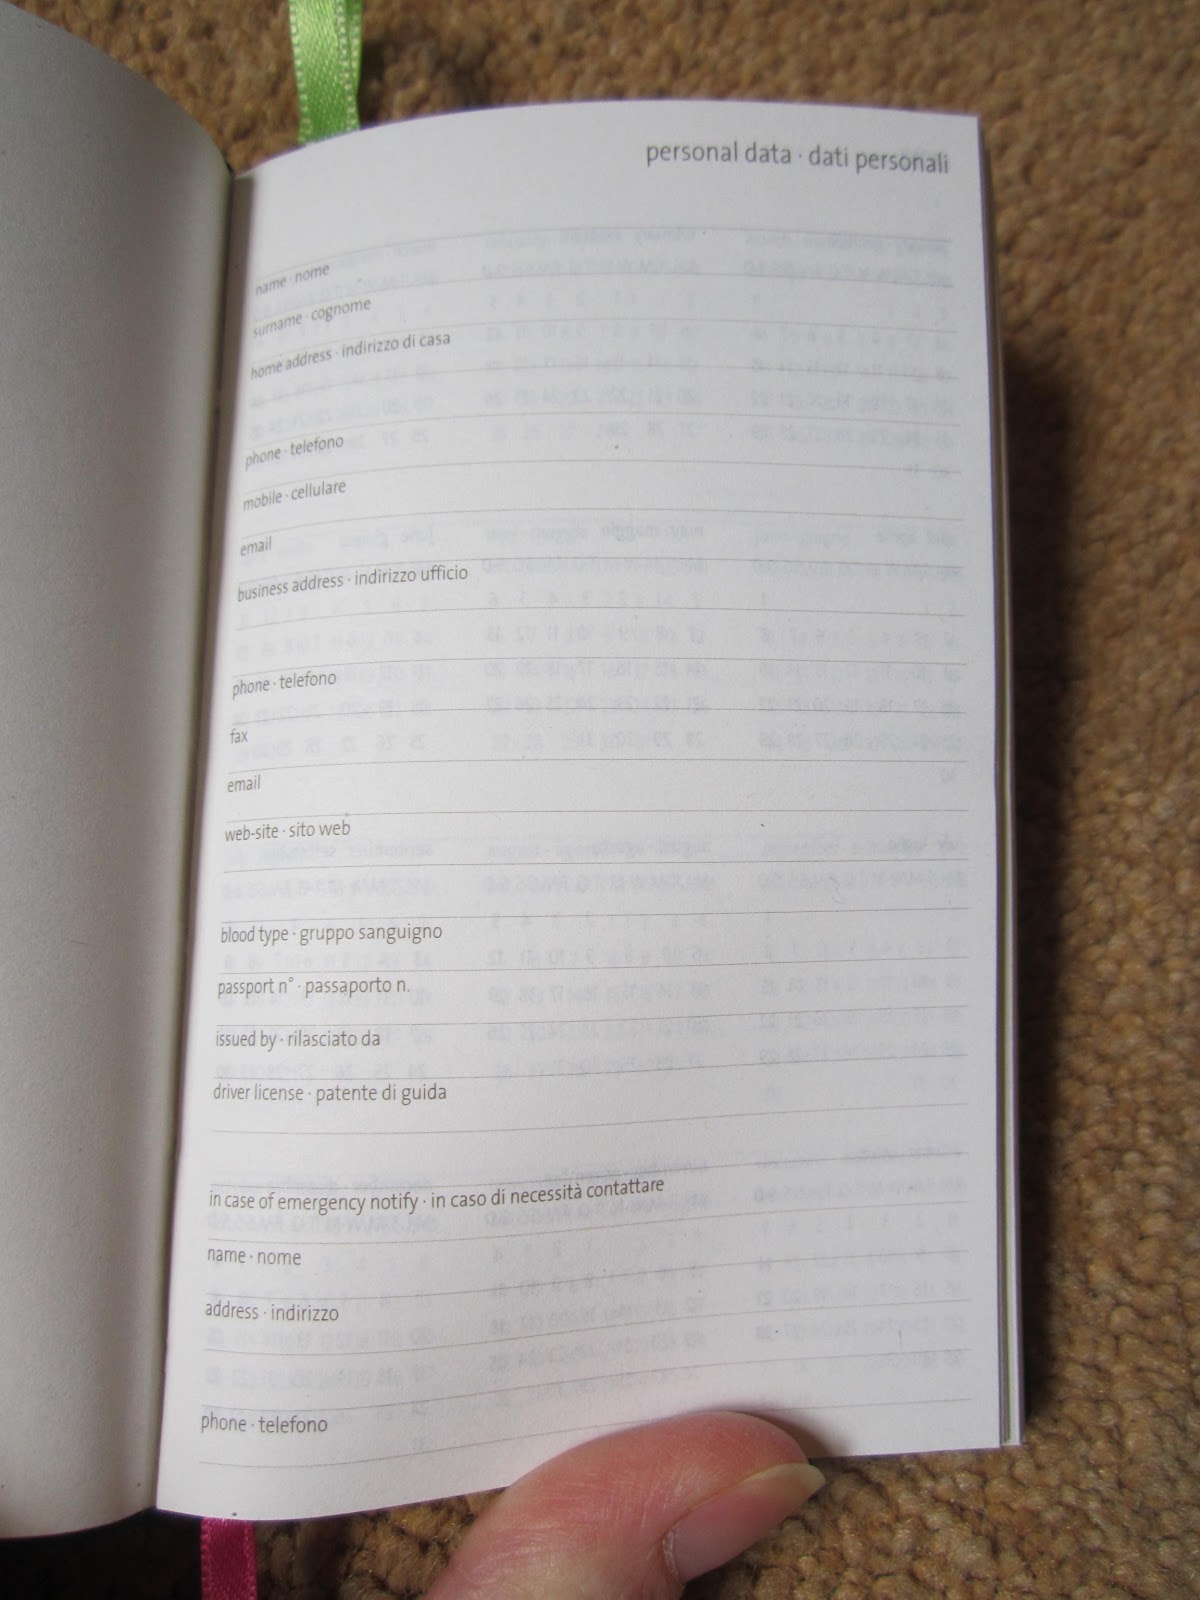 personal data · dati personali
name · nome
surname · cognome
home address · indirizzo di casa
phone · telefono
mobile · cellulare
email
business address · indirizzo ufficio
phone · telefono
fax
email
web-site · sito web
blood type · gruppo sanguigno
passport n° · passaporto n.
issued by · rilasciato da
driver license · patente di guida
in case of emergency notify · in caso di necessità contattare
name · nome
address · indirizzo
phone · telefono